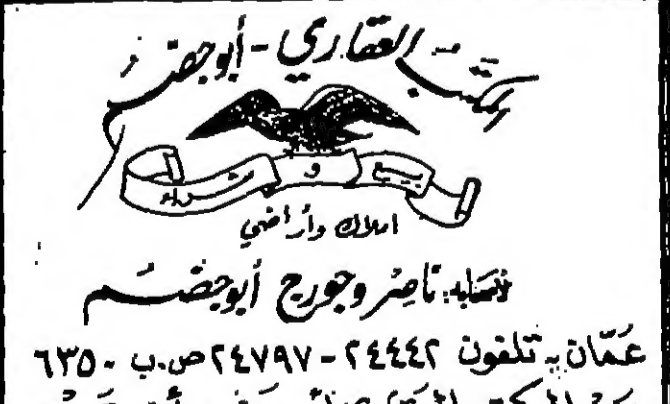 المكتب العقاري - أبو جضم
بيع و شراء
املاك وأراضي
لأصحابه: ناصر وجورج أبو جضم
عمّان - تلفون ٢٤٤٤٢ - ٢٤٧٩٧ ص.ب - ٦٣٥